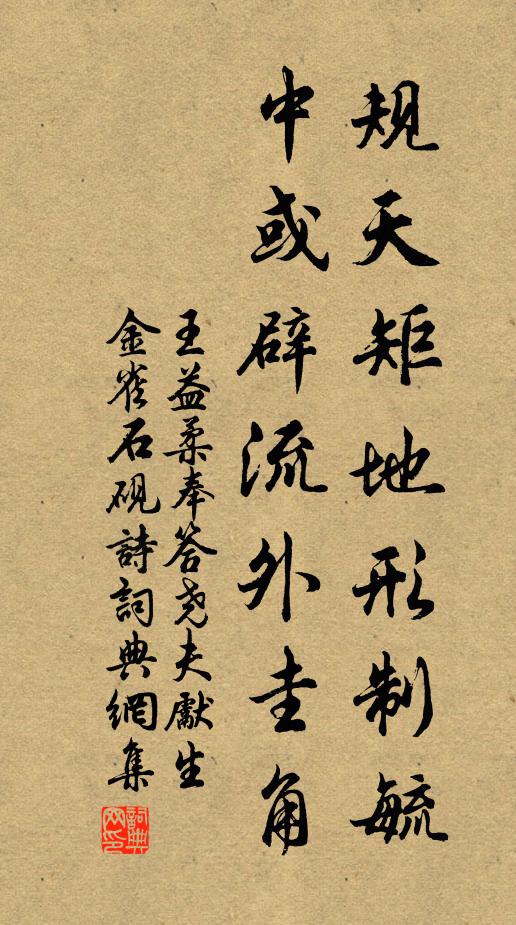 規天矩地形制毓
中或辟流外圭角
王益柔奉答尧夫獻生
金雀石硯詩詞典網集
詞典网印